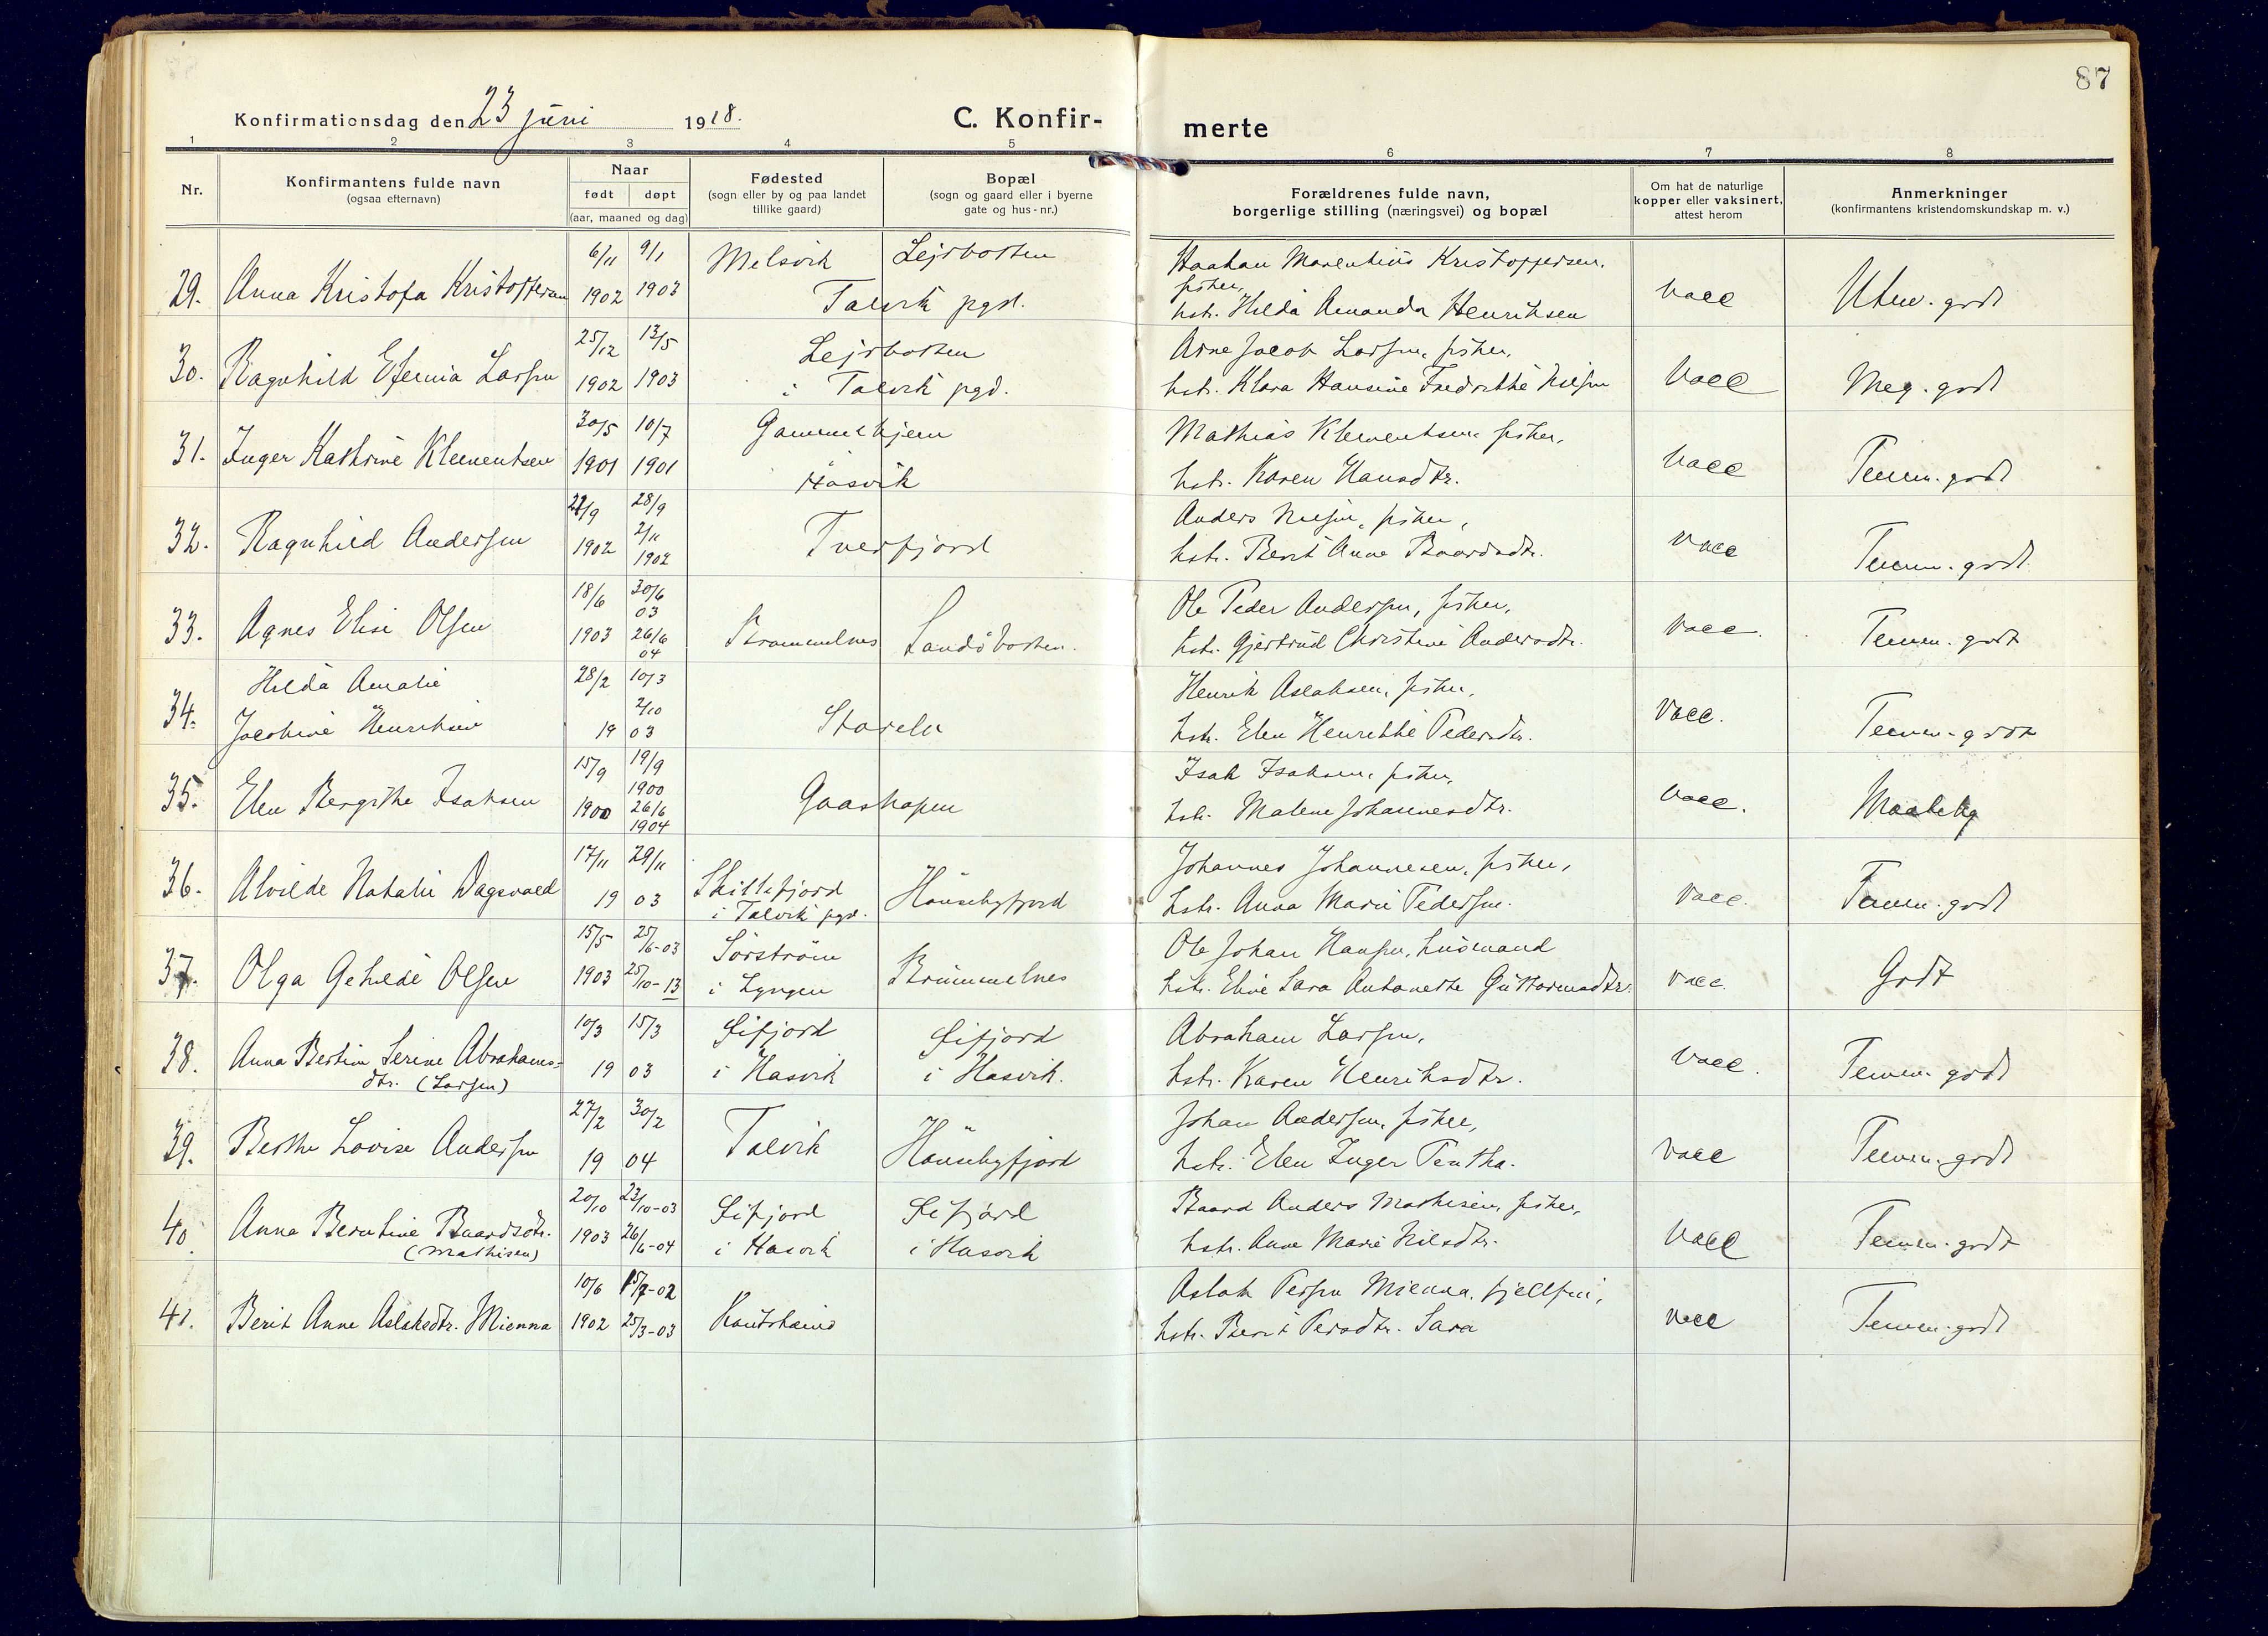 87
Konfirmationsdag den 23 juni 1918.
C. Konfir-
merte
1 2 3 4 5 6 7 8
Nr.
Konfirmantens fulde navn
(ogsaa efternavn)
Naar
født døpt
(aar, maaned og dag)
Fødested
(sogn eller by og paa landet
tillike gaard)
Bopæl
(sogn og gaard eller i byerne
gate og hus-nr.)
Forældrenes fulde navn,
borgerlige stilling (næringsvei) og bopæl
Om hat de naturlige
kopper eller vaksinert,
attest herom
Anmerkninger
(konfirmantens kristendomskundskap m. v.)
6/11 9/1 Melsvik Lejrbotten Haakan Marentius Kristoffersen,
fisker,
29. Anna Kristofa Kristoffersen 1902 1903 Talvik pgd. hstr. Hilda Amanda Henriksen vacc Utm. godt
25/12 13/5 Lejrbotten Arne Jacob Larsen, fisker,
30. Ragnhild Efenia Larsen 1902 1903 i Talvik pgd. hstr. Klara Hansine Fredrikke Nilsen vacc Meg. godt
30/5 10/7 Gammelhjem Mathias Klementsen, fisker,
31. Inger Kathrine Klementsen 1901 1901 Hasvik hstr. Karen Hansdtr. vacc Temm. godt
/9 28/9 Anders Nilsen, fisker,
32. Ragnhild Andersen 1902 2/11 1902 Tverfjord hstr. Berit Anne Baardsdtr. vacc Temm. godt
18/6 30/6 03 Ole Peder Andersen, fisker,
33. Agnes Elise Olsen 1903 26/6 04 Brammelnes Sandöbotten. hstr. Gjertrud Christine Andersdtr. vacc. Temm. godt
Hilda Amalie 28/2 10/3 Henrik Aslaksen, fisker,
34. Jacobine Henriksen 2/10 19 03 Storelv hstr. Elen Henrikke Pedersdtr. vacc. Temm. godt
15/9 19/9 1900 Isak Isaksen, fisker,
35. Elen Bergithe Isaksen 1900 26/6 1904 Gaashopen hstr. Malene Johannesdtr. vacc. Maadelig
17/11 29/11 Skillefjord Johannes Johannesen, fisker,
36. Alvilde Natalie Dagsvold 19 03 i Talvik pgd. Hönsebyfjord hstr. Anna Marie Pedersen. vacc. Temm. godt
15/5 25/6-03 Sörström Ole Johan Hansen, husmand
37. Olga Gehilde Olsen 1903 25/10-13 i Lyngen Brummelnes hstr. Eline Sara Antonette Guttormsdtr. vacc. Godt
10/3 15/3 Sifjord Sifjord Abraham Larsen,
38. Anna Bertine Serine Abrahams-
dtr. (Larsen) 19 03 i Hasvik i Hasvik. hstr. Karen Henriksdtr. vacc. Temm. godt
27/2 30/2 Johan Andersen, fisker,
39. Berthe Lovise Andersen 19 04 Talvik Hönsebyfjord hstr. Elen Inger Pentha. vacc Temm. godt
20/10 23/10-03 Sifjord Sifjord Baard Anders Mathisen, fisker,
40. Anna Berntine Baardsdtr.
(Mathisen) 1903 26/6-04 i Hasvik i Hasvik hstr. Anne Marie Nilsdtr. vacc Temm. godt
10/6 15/7-02 Aslak Persen Mienna, fjellfin,
41. Berit Anne Aslaksdtr. Mienna 1902 25/3-03 Kautokeino hstr. Berit Persdtr. Sara vacc Temm. godt